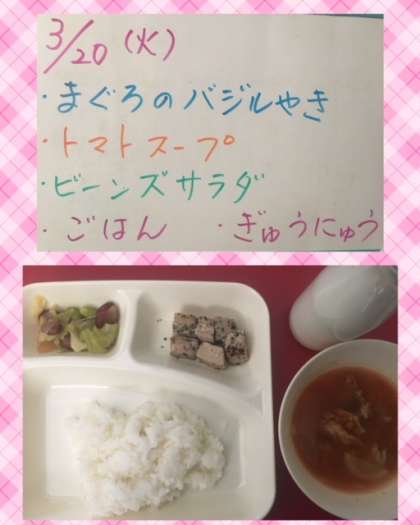 3/20(火)
・まぐろのバジルやき
・トマトスープ
・ビーンズサラダ
・ごはん ・ぎゅうにゅう